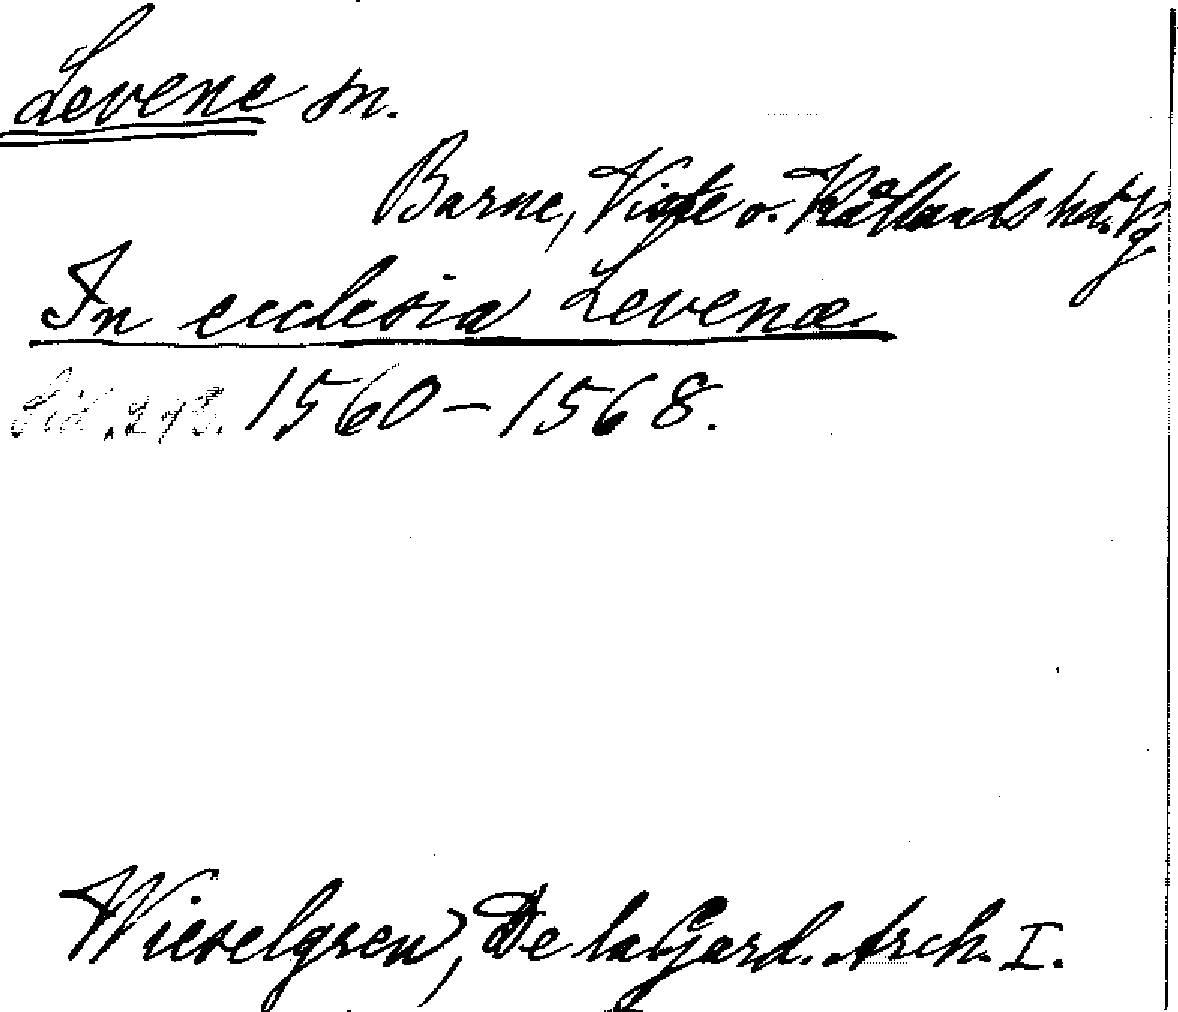 Levene sn.
Barne, Viste o. Kållands hd. Vg
In ecclesia Levenæ
Sid. 293. 1560-1568.
Wieselgren, De la Gard. Arch. I.